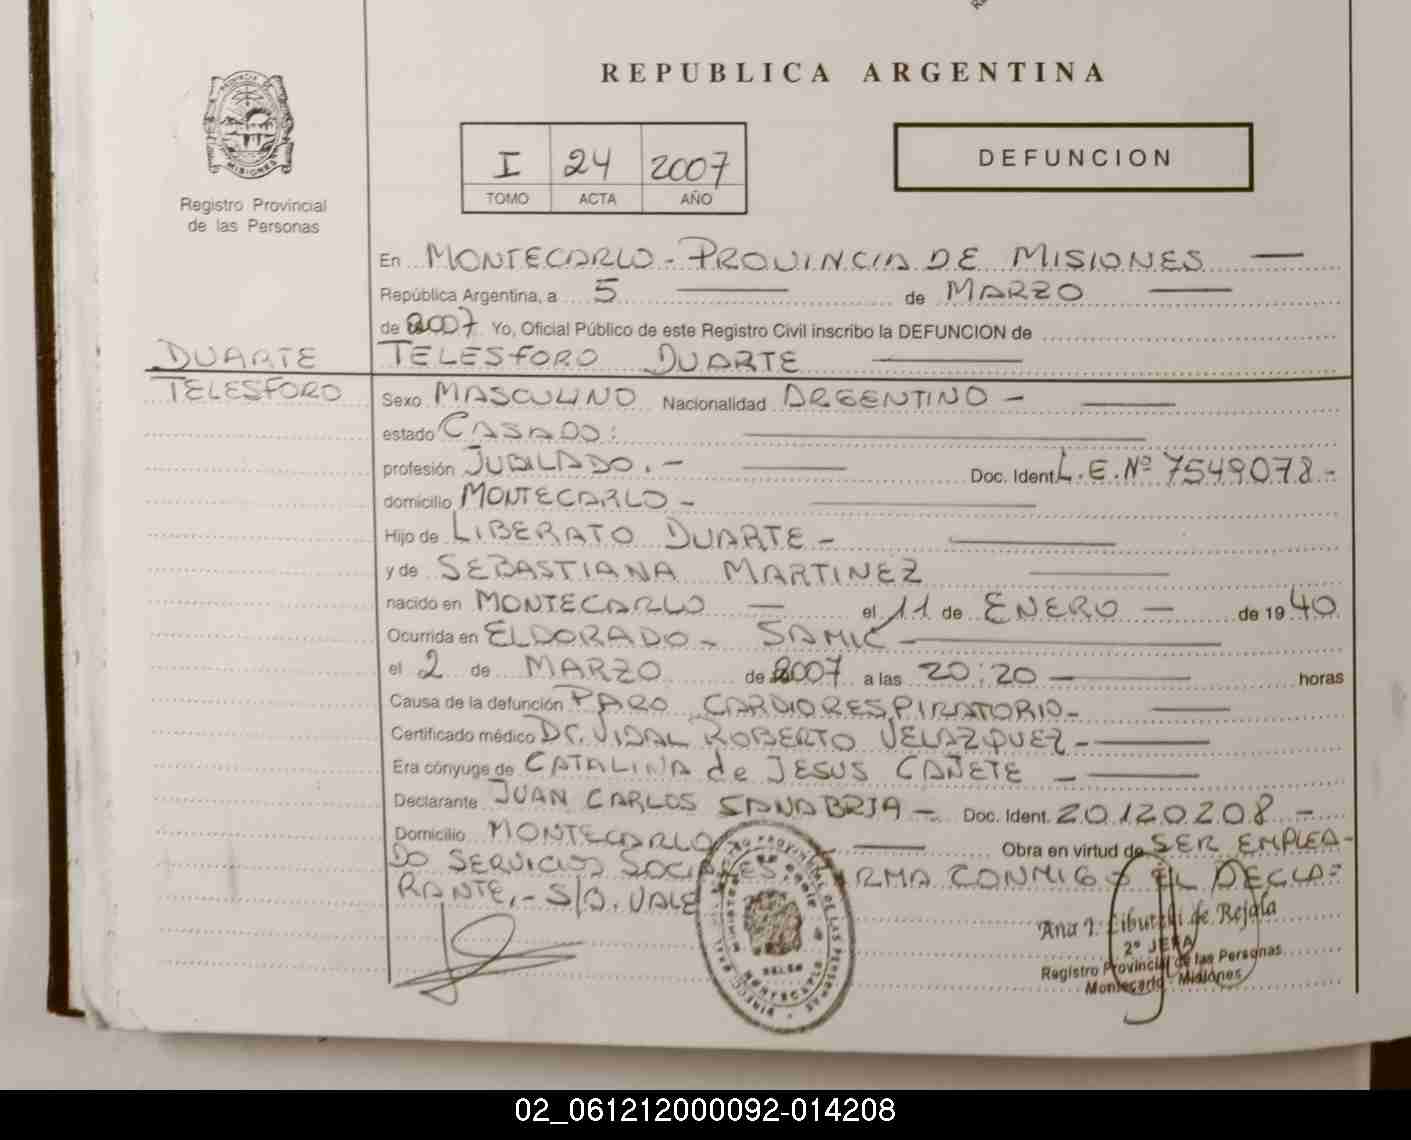 REPUBLICA ARGENTINA
PROVINCIA
MISIONES
Registro Provincial
de las Personas
I 24 2007
TOMO ACTA AÑO
DEFUNCION
En MONTECARLO - PROVINCIA DE MISIONES —
República Argentina, a 5 — de MARZO —
de 2007 Yo, Oficial Público de este Registro Civil inscribo la DEFUNCION de
DUARTE TELESFORO DUARTE —
TELESFORO Sexo MASCULINO Nacionalidad ARGENTINO - —
estado CASADO: —
profesión JUBILADO.- — Doc. Ident. L.E.Nº 7549078-
domicilio MONTECARLO - —
Hijo de LIBERATO DUARTE - —
y de SEBASTIANA MARTINEZ —
nacido en MONTECARLO — el 11 de ENERO — de 19 40
Ocurrida en ELDORADO - SAMIC —
el 2 de MARZO de 2007 a las 20:20 — horas
Causa de la defunción PARO CARDIORESPIRATORIO- —
Certificado médico Dr. VIDAL ROBERTO VELAZQUEZ - —
Era cónyuge de CATALINA de JESUS CAÑETE - —
Declarante JUAN CARLOS SANABRIA - Doc. Ident. 20.120.208 -
Domicilio MONTECARLO — Obra en virtud de SER EMPLEA-
DO SERVICIOS SOCIALES FIRMA CONMIGO EL DECLA-
RANTE.- S/B. VALE
Ana I. Libutzki de Rejala
2º JEFA
Registro Provincial de las Personas
Montecarlo - Misiones
02_061212000092-014208